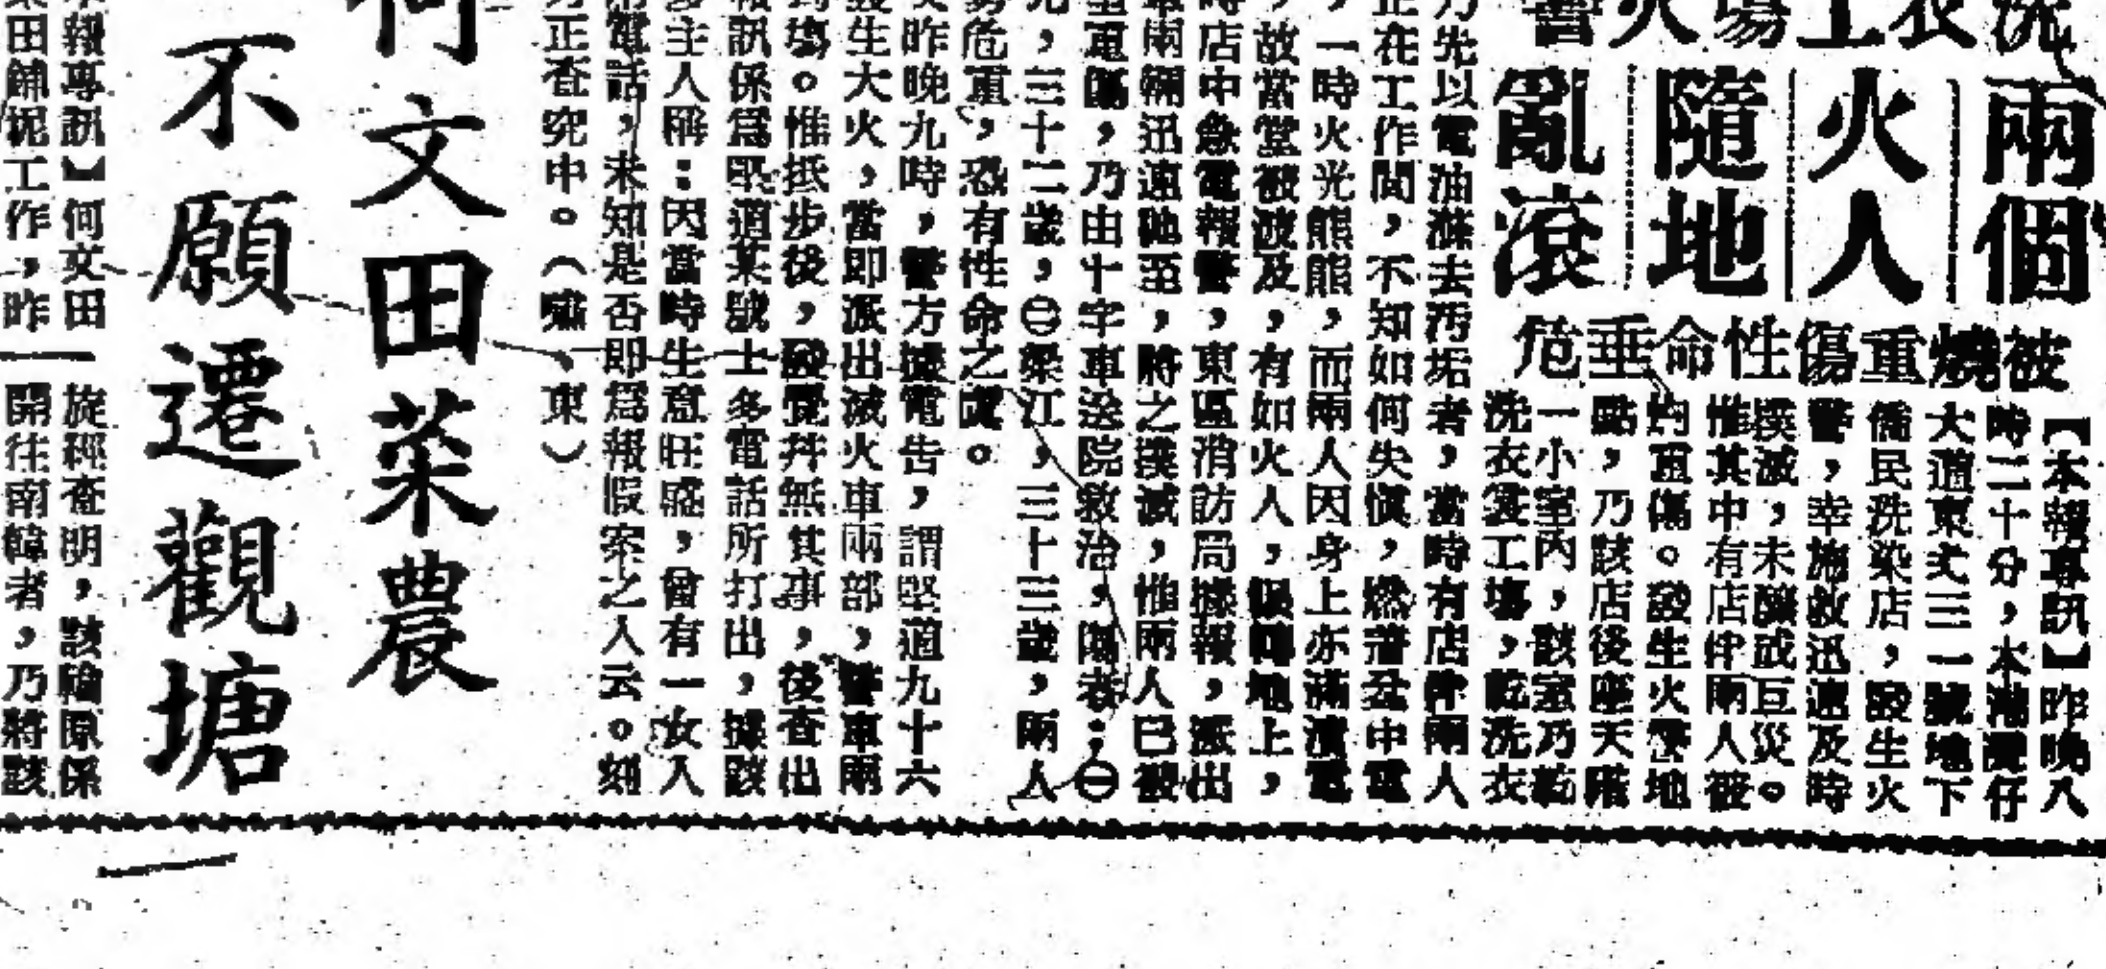 洗衣工場火警
兩個
火人
隨地
亂滾
被燒重傷性命垂危
【本報專訊】昨晚八
時二十分，本港灣仔
大道東弍三一號地下
僑民洗染店，發生火
警，幸施救迅速及時
撲滅，未釀成巨災。
惟其中有店伴兩人被
灼重傷。發生火警地
點，乃該店後座天階
一小室內，該室乃乾
洗衣裳工場，乾洗衣
乃先以電油滌去污垢者，當時有店伴兩人
正在工作間，不知如何失慎，燃着盆中電
，一時火光熊熊，而兩人因身上亦滿濺電
，故當堂被波及，有如火人，偃仰地上，
時店中急電報警，東區消防局據報，派出
車兩輛迅速馳至，將之撲滅，惟兩人已被
重傷，乃由十字車送院救治，傷者：㊀
，三十二歲，㊁梁江，三十三歲，兩人
危重，恐有性命之虞。
昨晚九時，警方據電告，謂堅道九十六
發生大火，當即派出滅火車兩部，警車兩
場。惟抵步後，發覺幷無其事，後查出
報訊係爲堅道某號士多電話所打出，據該
多主人稱：因當時生意旺盛，曾有一女人
電話，未知是否即爲報假案之人云。刻
方正查究中。（嘯、東）
何文田菜農
不願遷觀塘
本報專訊】何文田
田舖泥工作，昨
旋經查明，該輪原係
開往南韓者，乃將該